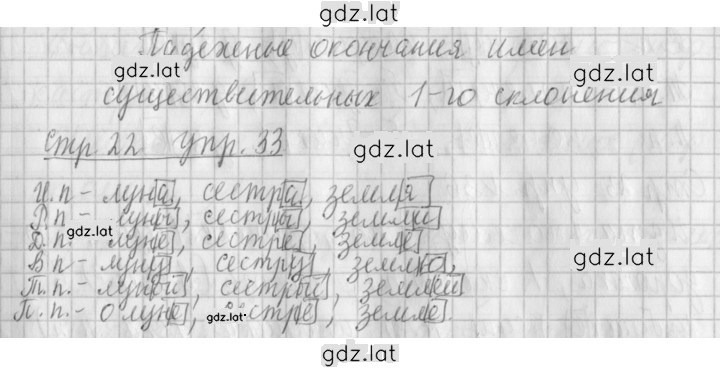 gdz.lat
Падежные окончания имен
gdz.lat
gdz.lat
существительных 1-го склонения
стр 22 упр. 33
gdz.lat
И.п - луна, сестра, земля
Р.п - луны, сестры, земли
gdz.lat
Д.п. - луне, сестре, земле
gdz.lat
В п - луну, сестру, землю,
Т.п. - луной, сестрой, землей
П.п. - о луне, сестре, земле.
gdz.lat
gdz.lat